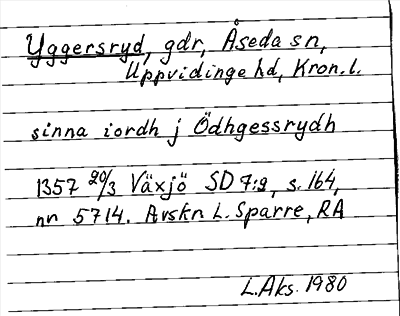 Yggersryd, gdr, Åseda sn,
Uppvidinge hd, Kron.l.
sinna iordh j Ödhgessrydh
1357 20/3 Växjö SD 7:2, s. 164,
nn 5714. Avskr L. Sparre, RA
L.Aks. 1980